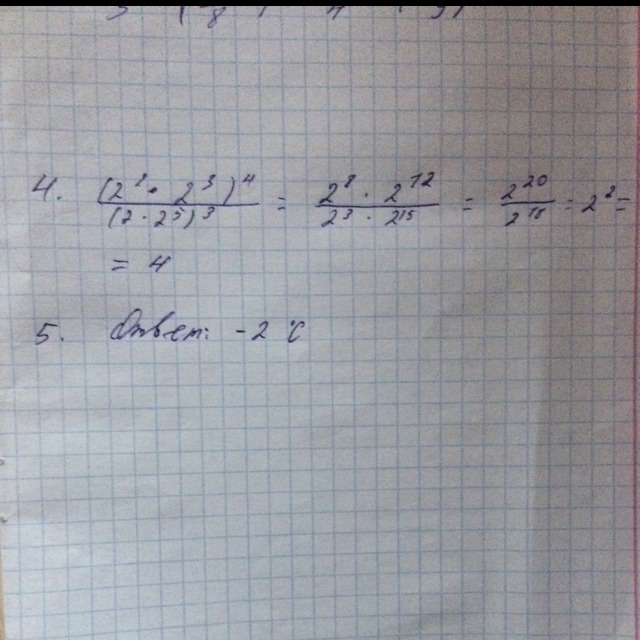 4. (2² · 2³)⁴ / (2 · 2⁵)³ = 2⁸ · 2¹² / 2³ · 2¹⁵ = 2²⁰ / 2¹⁸ = 2² =
= 4
5. Ответ: -2 с